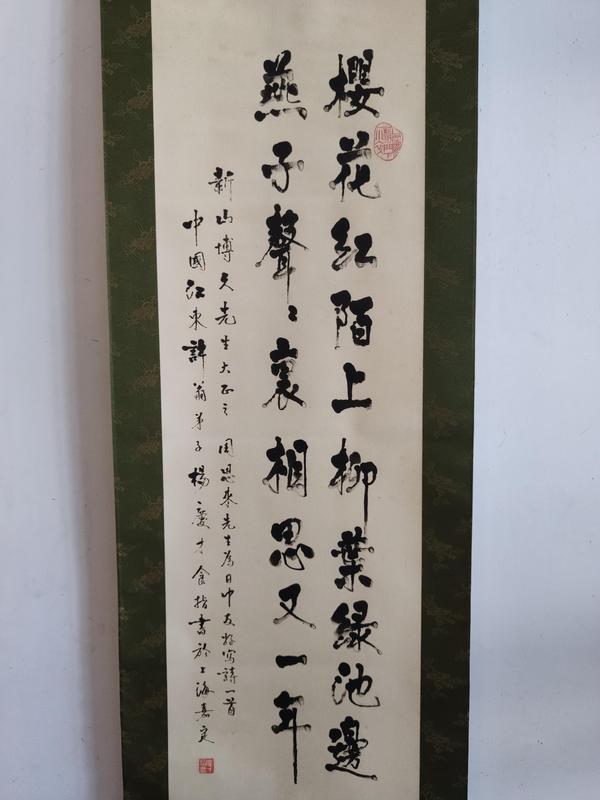 櫻花紅陌上柳葉緑池邊
燕子聲〻裏相思又一年
新山博久先生大正之 周恩来先生為日中友好寫詩一首
中國江東許翁弟子楊慶才食指書於上海嘉定